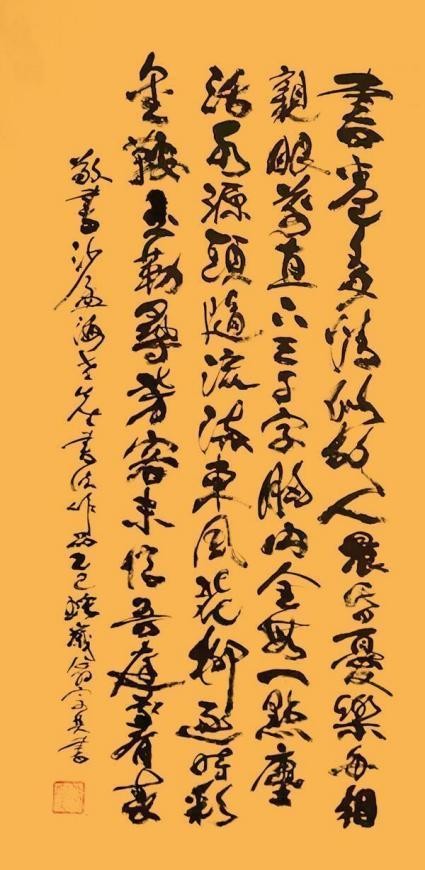 書卷多情似故人晨昏憂樂每相
親眼前直下三千字胸內全無一點塵
活水源頭隨流滿東風花柳逐時新
金鞍玉勒尋芳客未信吾庭別有春
敬書沙孟海老先生書法作品乙巳 歲 書